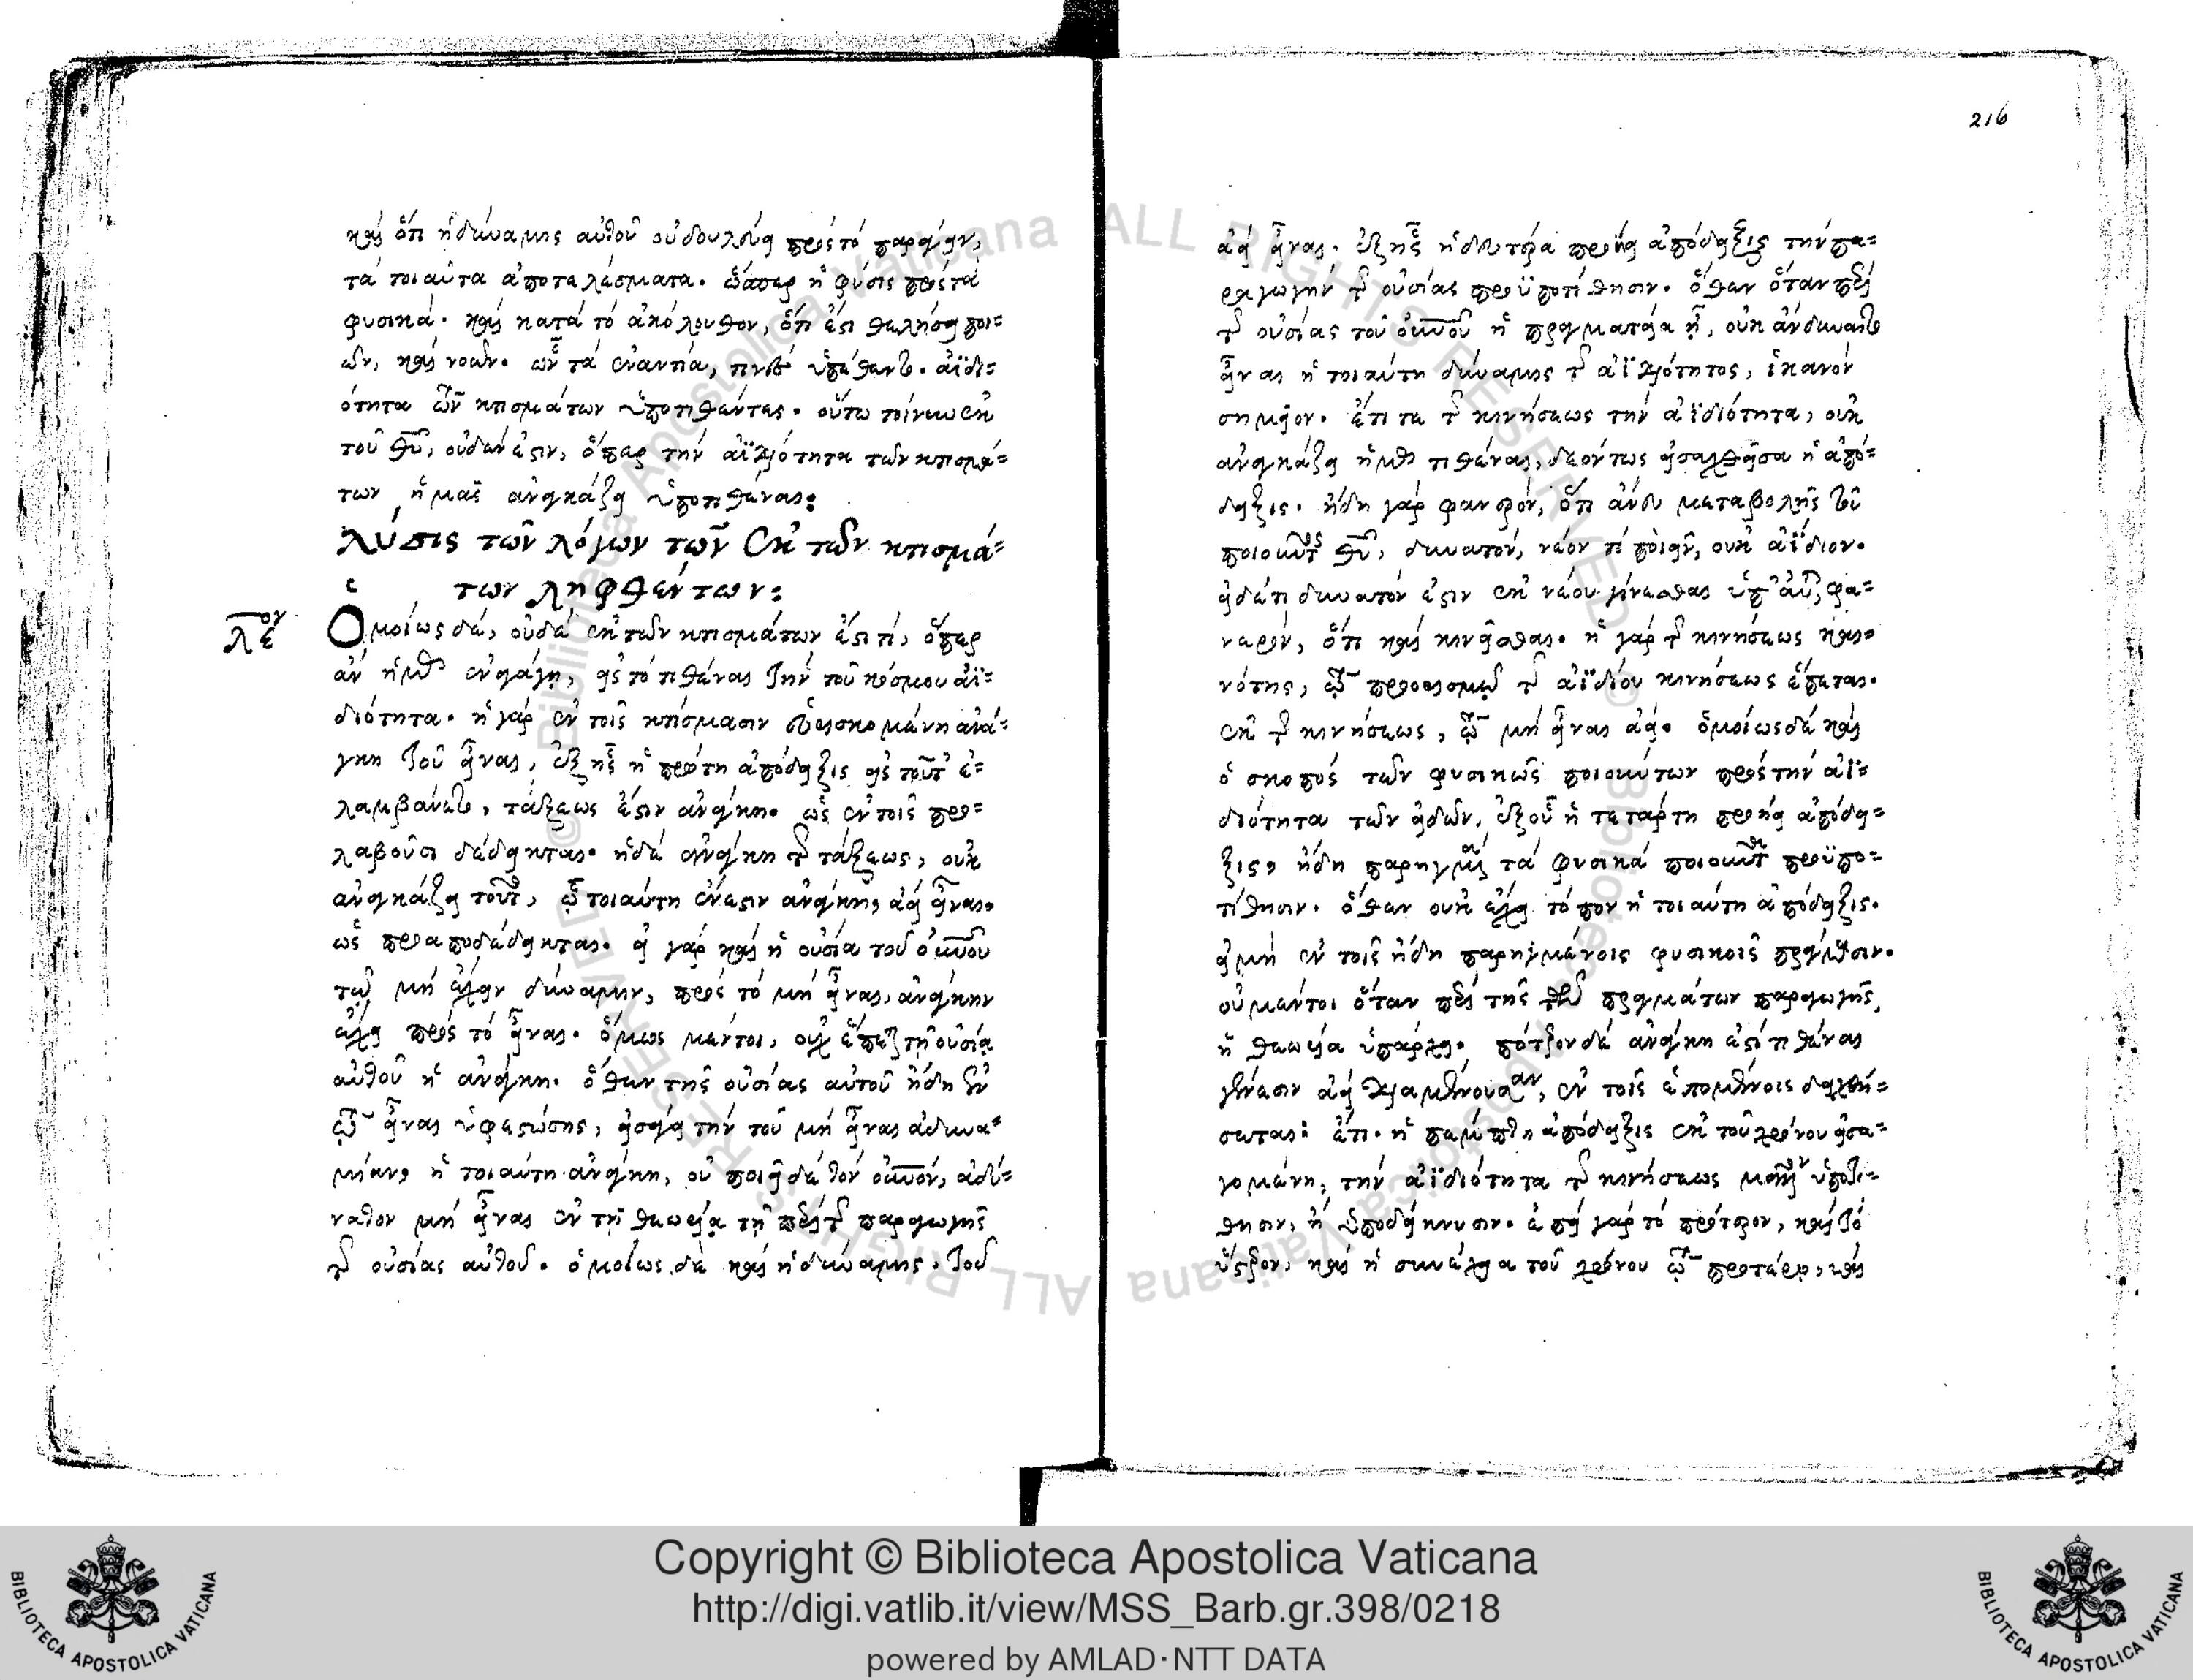 καὶ ὅτι ἡ δύναμις αὐτοῦ οὐ δουλεύει πρὸς τὸ παράγειν,
τὰ τοιαῦτα ἀποτελέσματα. ὥσπερ ἡ φύσις πρὸς τὰ
φυσικά. καὶ κατὰ τὸ ἀκόλουθον, ὅτι ἐστὶ θελήσει ποι=
ῶν, καὶ νοῶν. ὧν τὰ ἐναντία, τινὲς ὑπέθεντο. ἀϊδι=
ότητα τῶν κτισμάτων ὑποτιθέντες. οὕτω τοίνυν ἐκ
τοῦ θῡ, οὐδέν ἐστιν, ὅπερ τὴν ἀϊδιότητα τῶν κτισμά=
των ἡμᾶς ἀναγκάζει ὑποτιθέναι:
λύσις τῶν λόγων τῶν ἐκ τῶν κτισμά=
των ληφθέντων:
λε ον
Ὁμοίως δὲ, οὐδὲ ἐκ τῶν κτισμάτων ἐστί τι, ὅπερ
ἂν ἡμᾶς ἐναγάγῃ, εἰς τὸ τιθέναι τὴν τοῦ κόσμου ἀϊ=
διότητα. ἡ γὰρ ἐν τοῖς κτίσμασιν εὑρισκομένη ἀνά=
γκη τοῦ εἶναι, ἐξ ἧς ἡ πρώτη ἀπόδειξις εἰς τοῦτ' ἐ=
λαμβάνετο, τάξεώς ἐστιν ἀνάγκη. ὡς ἐν τοῖς προ=
λαβοῦσι δέδεικται. ἡ δὲ ἀνάγκη τῆς τάξεως, οὐκ
ἀναγκάζει τοῦτο, ᾧ τοιαύτη ἔνεστιν ἀνάγκη, ἀεὶ εἶναι.
ὡς προαποδέδεικται. εἰ γὰρ καὶ ἡ οὐσία τοῦ οὐνοῦ
τῷ μὴ ἔχειν δύναμιν, πρὸς τὸ μὴ εἶναι, ἀνάγκην
ἔχει πρὸς τὸ εἶναι. ὅμως μέντοι, οὐχ ἕπεται τῇ οὐσίᾳ
αὐτοῦ ἡ ἀνάγκη. ὅθεν τῆς οὐσίας αὐτοῦ ἤδη ἐν
τῷ εἶναι ὑφεστώσης, εἰσάγει τὴν τοῦ μὴ εἶναι ἀδυνα=
μίαν, ἡ τοιαύτη ἀνάγκη, οὐ ποιεῖ δὲ τὸν οὐνόν, ἀδύ=
νατον μὴ εἶναι ἐν τῇ θεωρίᾳ τῇ περὶ τῆς παραγωγῆς
τῆς οὐσίας αὐτοῦ. ὁμοίως δὲ καὶ ἡ δύναμις, τοῦ
216
ἀεὶ εἶναι. ἐξ ἧς ἡ δευτέρα προῄει ἀπόδειξις τὴν πα=
ραγωγὴν τῆς οὐσίας προϋποτίθησιν. ὅθεν ὅταν περὶ
τῆς οὐσίας τοῦ οὐνοῦ ἡ πραγματεία ᾖ, οὐκ ἂν δύναιτο
εἶναι ἡ τοιαύτη δύναμις τῆς ἀϊδιότητος, ἱκανὸν
σημεῖον. ἔτι τε τῆς κινήσεως τὴν ἀϊδιότητα, οὐκ
ἀναγκάζει ἡμᾶς τιθέναι, δεόντως εἰσαχθεῖσα ἡ ἀπό=
δειξις. ἤδη γὰρ φανερὸν, ὅτι ἄνευ μεταβολῆς τοῦ
ποιοῦντος θῡ, δυνατὸν, νέον τι ποιεῖν, οὐκ ἀΐδιον.
εἰ δέ τι δυνατόν ἐστιν ἐκ νέου γίνεσθαι ὑπ' αὐτοῦ, φα=
νερὸν, ὅτι καὶ κινεῖσθαι. ἡ γὰρ τῆς κινήσεως και=
νότης, τῷ προορισμῷ τῆς ἀϊδίου κινήσεως ἕπεται.
ἐκ τῆς κινήσεως, τῷ μὴ εἶναι ἀεί. ὁμοίως δὲ καὶ
ὁ σκοπὸς τῶν φυσικῶς ποιούντων πρὸς τὴν ἀϊ=
διότητα τῶν εἰδῶν, ἐξ οὗ ἡ τετάρτη προῄει ἀπόδει=
ξις, ἤδη παρηγμένα τὰ φυσικὰ ποιοῦντα προϋπο=
τίθησιν. ὅθεν οὐκ ἔχει τόπον ἡ τοιαύτη ἀπόδειξις.
εἰ μὴ ἐν τοῖς ἤδη παρηγμένοις φυσικοῖς πράγμασιν.
οὐ μέντοι ὅταν περὶ τῆς τῶν πραγμάτων παραγωγῆς,
ἡ θεωρία ὑπάρχῃ. πότερον δὲ ἀνάγκη ἐστὶ τιθέναι
γένεσιν ἀεὶ διαμένουσαν, ἐν τοῖς ἑπομένοις δειχθή=
σεται: ἔτι. ἡ πέμπτη ἀπόδειξις ἐκ τοῦ χρόνου εἰσα=
γομένη, τὴν ἀϊδιότητα τῆς κινήσεως μᾶλλον ὑποτί=
θησιν, ἢ ὑποδείκνυσιν. ἐπεὶ γὰρ τὸ πρότερον, καὶ τὸ
ὕστερον, καὶ ἡ συνέχεια τοῦ χρόνου τῷ προτέρῳ, καὶ
Copyright © Biblioteca Apostolica Vaticana
http://digi.vatlib.it/view/MSS_Barb.gr.398/0218
powered by AMLAD·NTT DATA
BIBLIOTECA APOSTOLICA VATICANA
BIBLIOTECA APOSTOLICA VATICANA